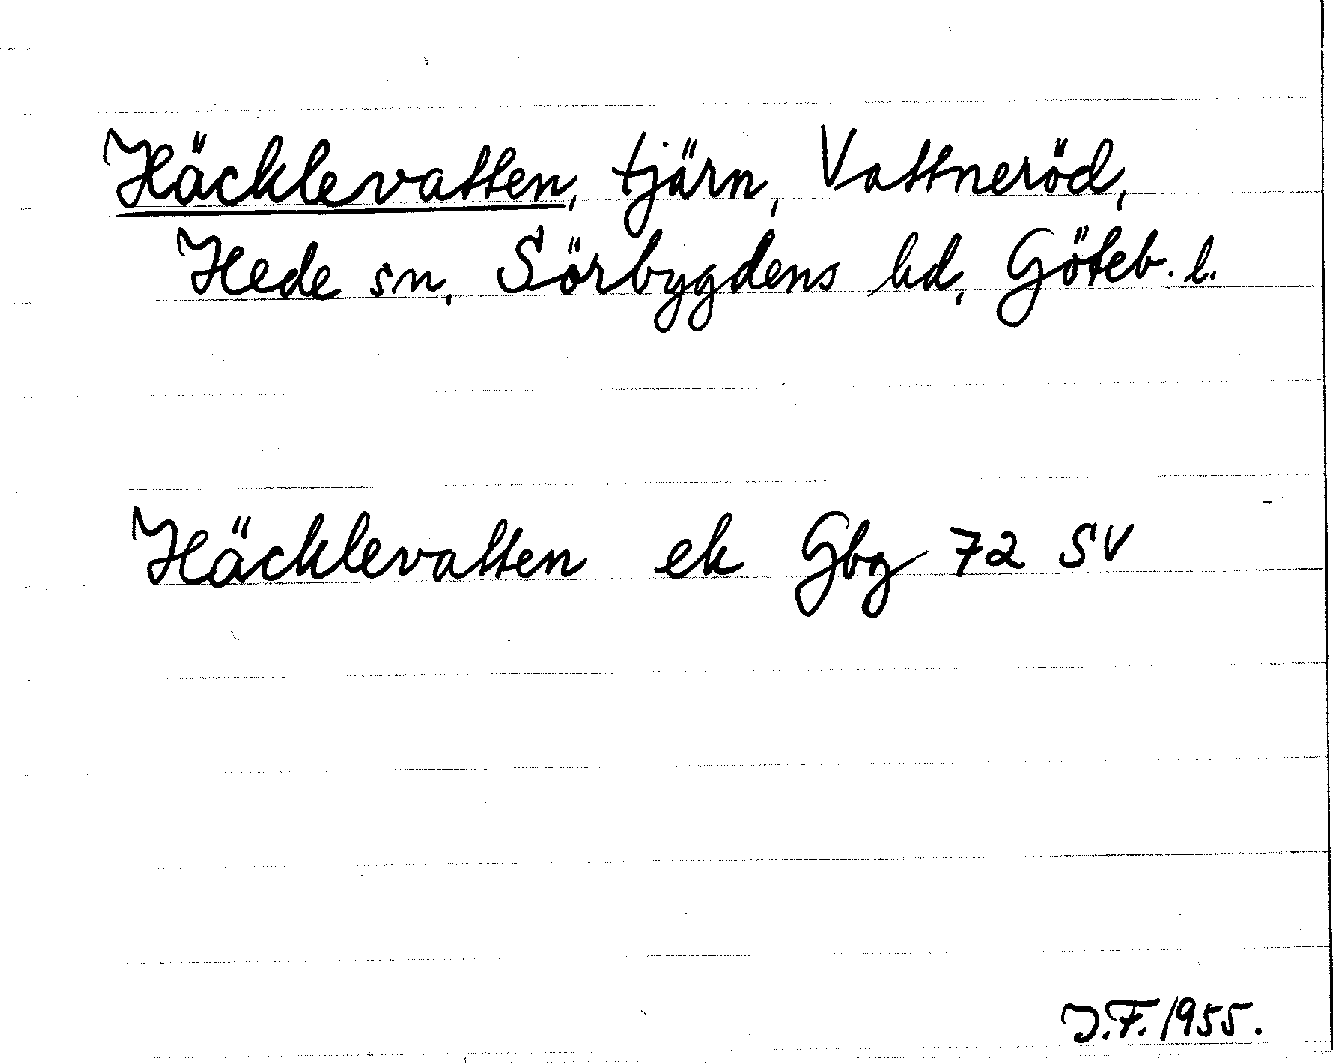 Häcklevatten, tjärn, Vattneröd,
Hede sn, Sörbygdens hd, Göteb. l.
Häcklevatten ek Gbg 72 SV
J.F. 1955.